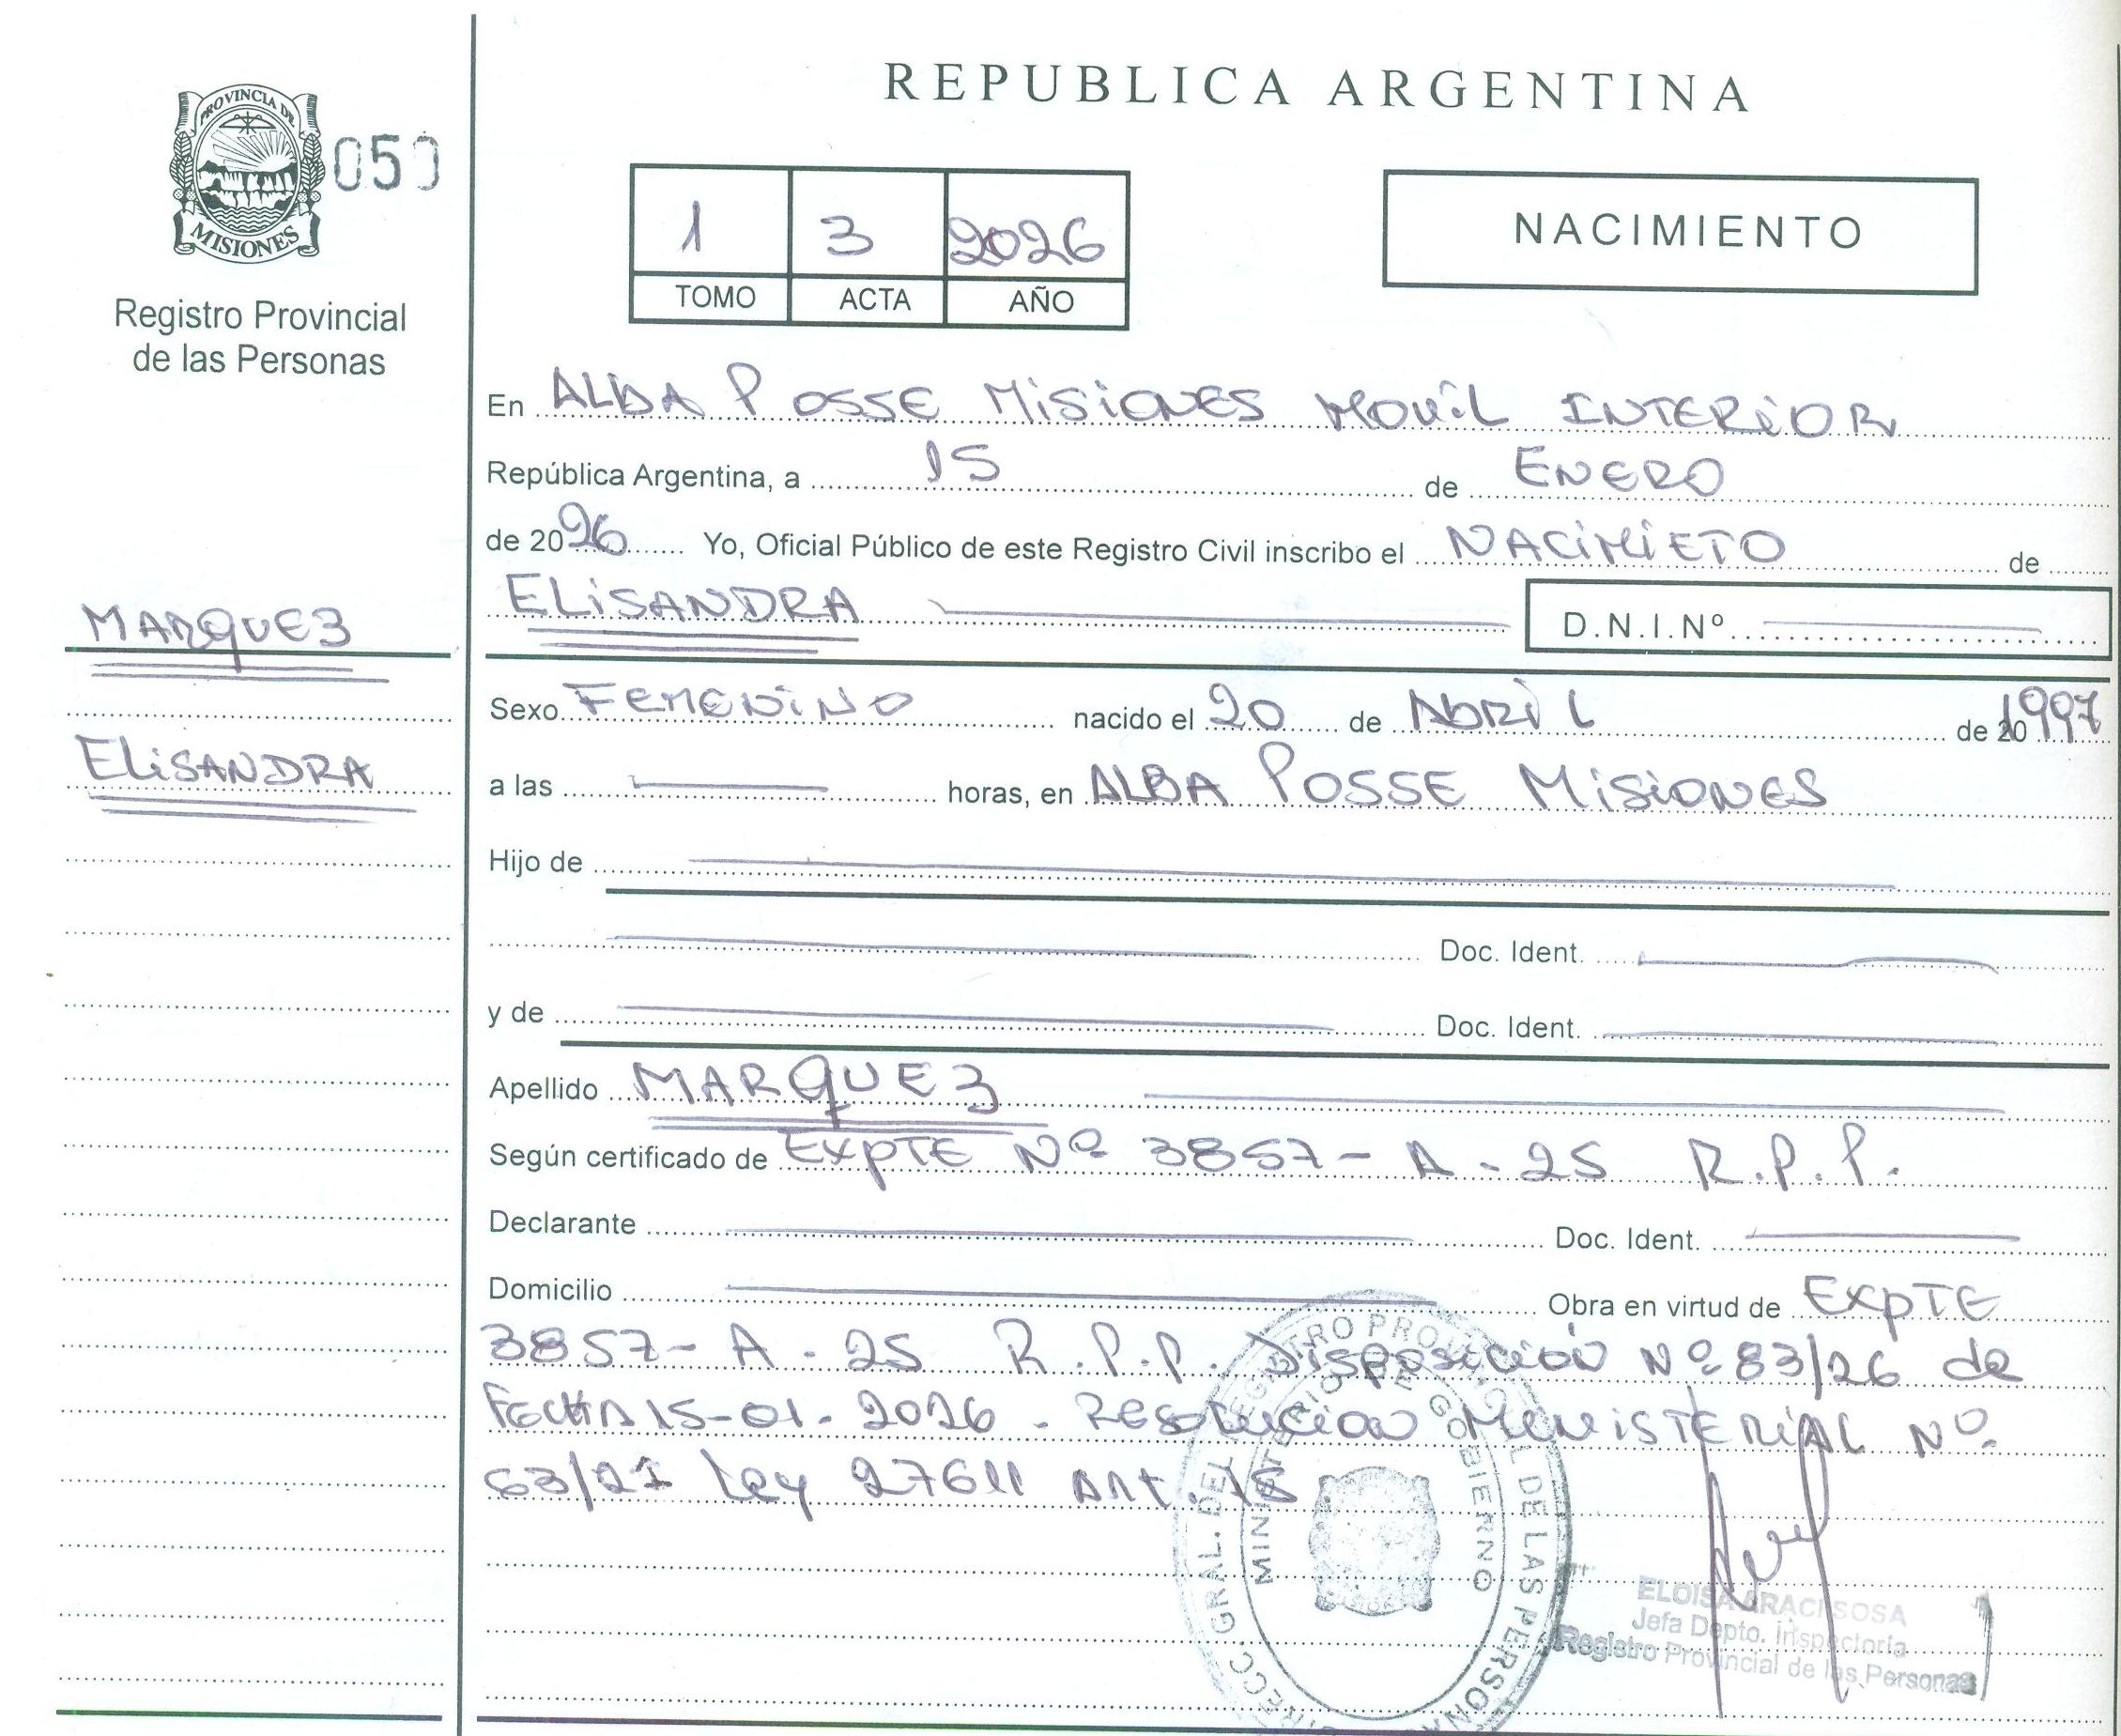 REPUBLICA ARGENTINA
PROVINCIA DE
MISIONES
Registro Provincial
de las Personas
1 3 2026
TOMO ACTA AÑO
NACIMIENTO
En ALBA POSSE MISIONES MOVIL INTERIOR
República Argentina, a 15 de ENERO
de 2026 Yo, Oficial Público de este Registro Civil inscribo el NACIMIETO de
ELISANDRA D.N.I.Nº
MARQUEZ
ELISANDRA
Sexo FEMENINO nacido el 20 de ABRIL de 1997
a las horas, en ALBA POSSE MISIONES
Hijo de
Doc. Ident.
y de Doc. Ident.
Apellido MARQUEZ
Según certificado de EXPTE Nº 3857-A-25 R.P.P.
Declarante Doc. Ident.
Domicilio Obra en virtud de EXPTE
3857-A-25 R.P.P. Disposición Nº 83/26 de
FECHA 15-01-2026 - Resolucion MINISTERIAL Nº
63/21 Ley 27611 Art.
MINISTERIO DE GOBIERNO
ELOISA ARACI SOSA
Jefa Depto. Inspectoría
Registro Provincial de las Personas